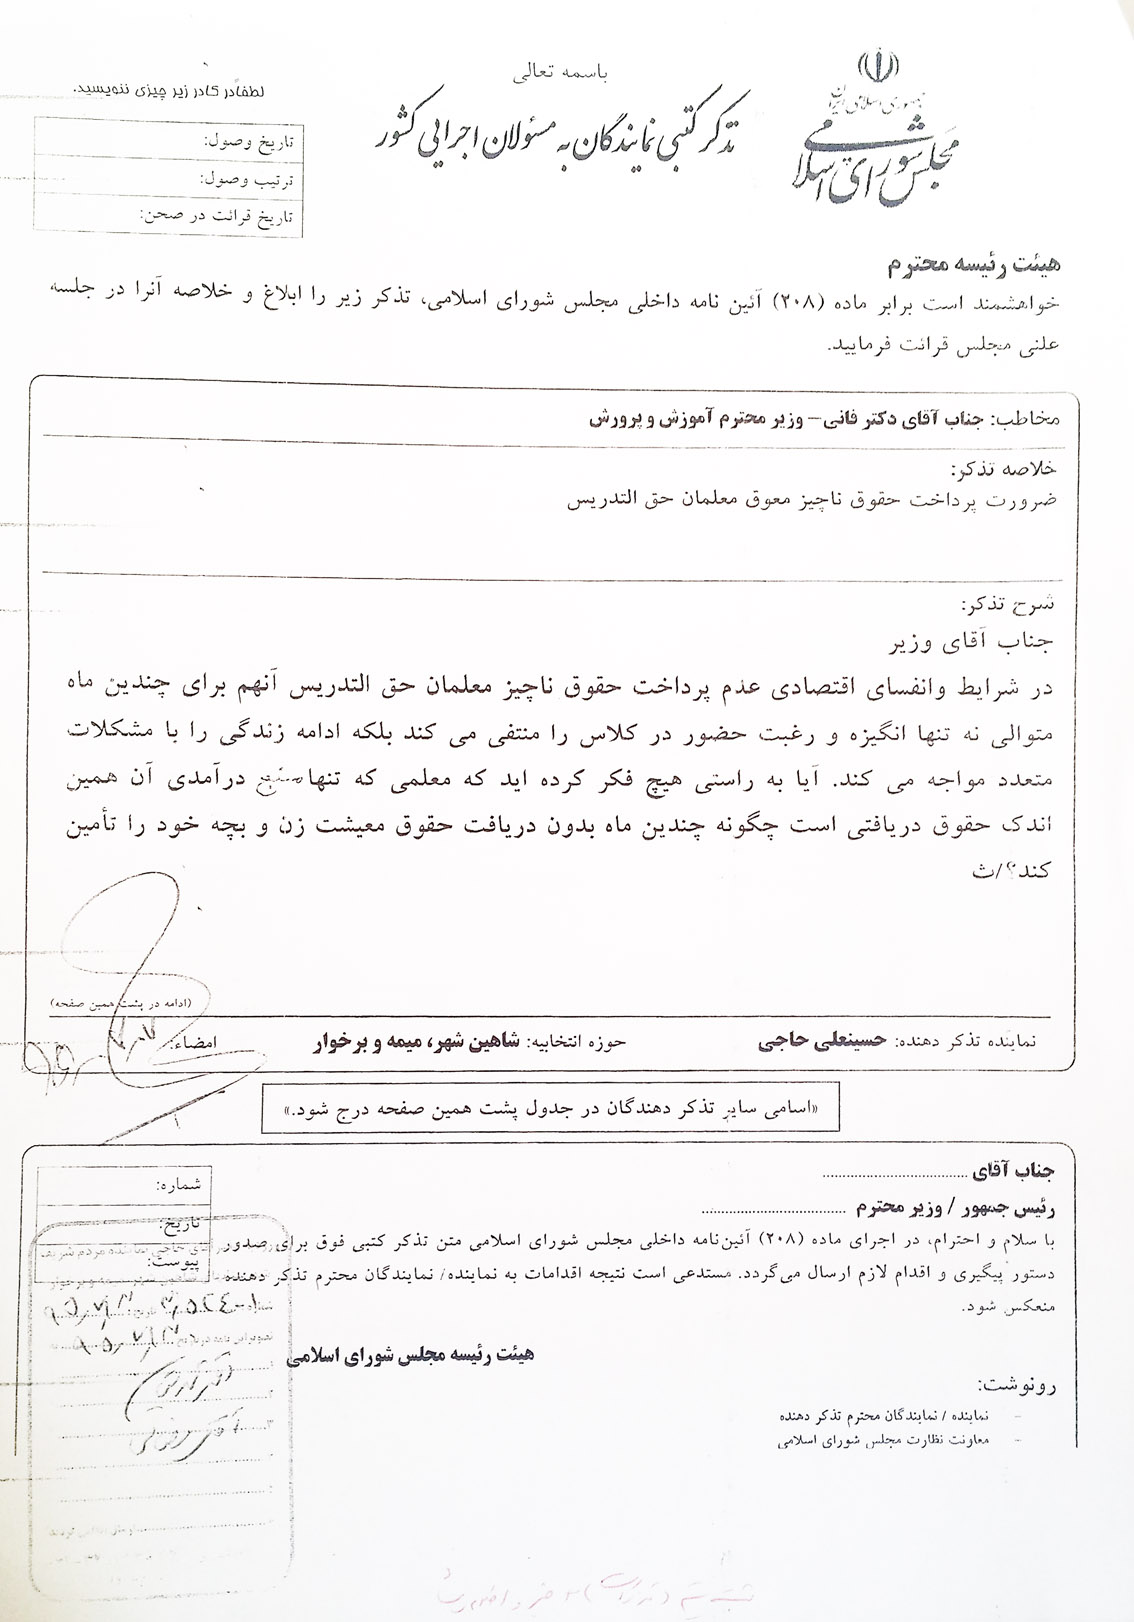 باسمه تعالی
جمهوری اسلامی ایران
مجلس شورای اسلامی
تذکر کتبی نمایندگان به مسئولان اجرایی کشور
لطفاً در کادر زیر چیزی ننویسید.
تاریخ وصول:
ترتیب وصول:
تاریخ قرائت در صحن:
هیئت رئیسه محترم
خواهشمند است برابر ماده (۲۰۸) آئین نامه داخلی مجلس شورای اسلامی، تذکر زیر را ابلاغ و خلاصه آنرا در جلسه
علنی مجلس قرائت فرمایید.
مخاطب: جناب آقای دکتر فانی – وزیر محترم آموزش و پرورش
خلاصه تذکر:
ضرورت پرداخت حقوق ناچیز معوق معلمان حق التدریس
شرح تذکر:
جناب آقای وزیر
در شرایط وانفسای اقتصادی عدم پرداخت حقوق ناچیز معلمان حق التدریس آنهم برای چندین ماه
متوالی نه تنها انگیزه و رغبت حضور در کلاس را منتفی می کند بلکه ادامه زندگی را با مشکلات
متعدد مواجه می کند. آیا به راستی هیچ فکر کرده اید که معلمی که تنها منبع درآمدی آن همین
اندک حقوق دریافتی است چگونه چندین ماه بدون دریافت حقوق معیشت زن و بچه خود را تأمین
کند؟/ث
(ادامه در پشت همین صفحه)
نماینده تذکر دهنده: حسینعلی حاجی حوزه انتخابیه: شاهین شهر، میمه و برخوار امضاء:
«اسامی سایر تذکر دهندگان در جدول پشت همین صفحه درج شود.»
جناب آقای ......................................
رئیس جمهور / وزیر محترم ......................................
با سلام و احترام، در اجرای ماده (۲۰۸) آئین‌نامه داخلی مجلس شورای اسلامی متن تذکر کتبی فوق برای صدور
دستور پیگیری و اقدام لازم ارسال می‌گردد. مستدعی است نتیجه اقدامات به نماینده/ نمایندگان محترم تذکر دهنده
منعکس شود.
شماره:
تاریخ:
پیوست:
هیئت رئیسه مجلس شورای اسلامی
رونوشت:
- نماینده / نمایندگان محترم تذکر دهنده
- معاونت نظارت مجلس شورای اسلامی